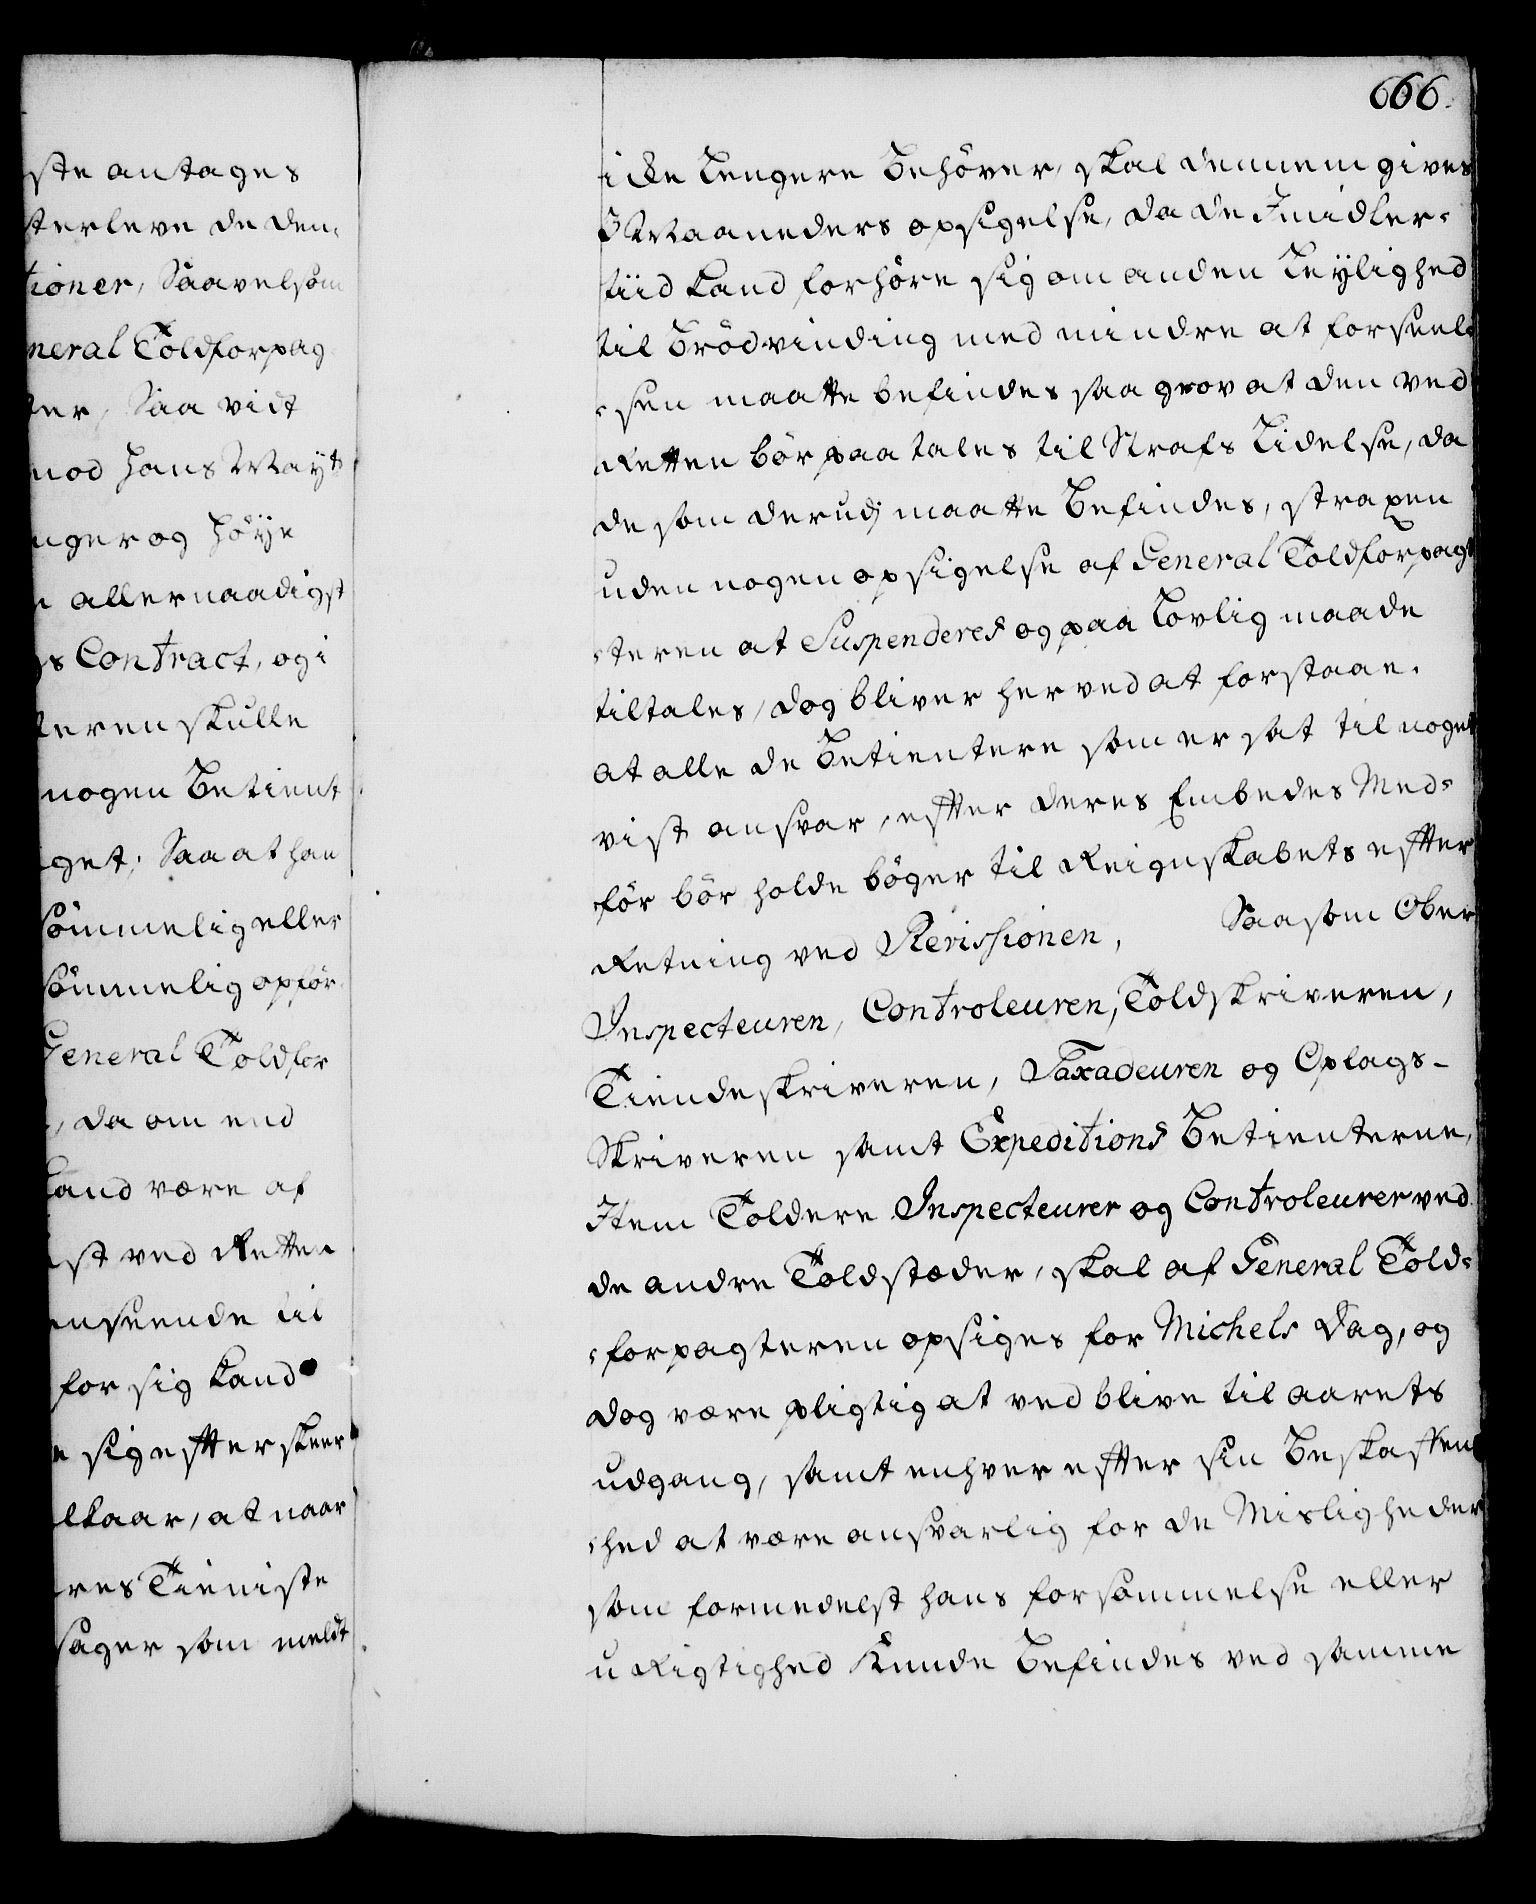 ste antages
terleve de den¬
tioner, Saavelsom
neral Toldforpag
ter, Saa vidt
mod Hans Mayts
nger og Höye
n allernaadigst
gs Contract, og i
teren skulle
nogen Betient
get; Saa at han
sömmelig eller
sömmelig opför¬
General Toldfor
, da om end
kand være af
ist ved Retten
enseende til
for sig kand
e sig effter skeer
lkaar, at naar
res Tieniste
sager som meldt
666.
icke lengere Behöver, skal dennem gives
3 Maaneders opsigelse, da de Imidler¬
tiid kand forhöre sig om anden Leylighed
til Brödvinding med mindre at forseel¬
¬sen maatte befindes saa grov at den ved
Retten bör paatales til Strafs Lidelse, da
de som derudj maatte Befindes, straxen
uden nogen opsigelse af General Toldforpag¬
¬teren at Suspenderes og paa Lovlig maade
tiltales, dog bliver herved at forstaae.
at alle de Betientere som er sat til noget
vist ansvar, effter deres Embedes Med¬
för bör holde böger til Reignskabets effter
Retning ved Revissionen, Saasom Ober
Inspecteuren, Controleuren, Toldskriveren,
Tiendeskriveren, Taxadeuren og Oplags-
Skriveren samt Expeditions Betienterne,
Item Toldere Inspecteurer og Controleurer ved
de andre Toldstæder, skal af General Told¬
¬forpagteren opsiges for Michels Dag, og
dog være pligtig at ved blive til aarets
udgang, samt enhver effter sin Beskaffen
¬hed at være ansvarlig for de Misligheder
som formedelst hans forsömmelse eller
u Rigtighed Kunde Befindes ved samme